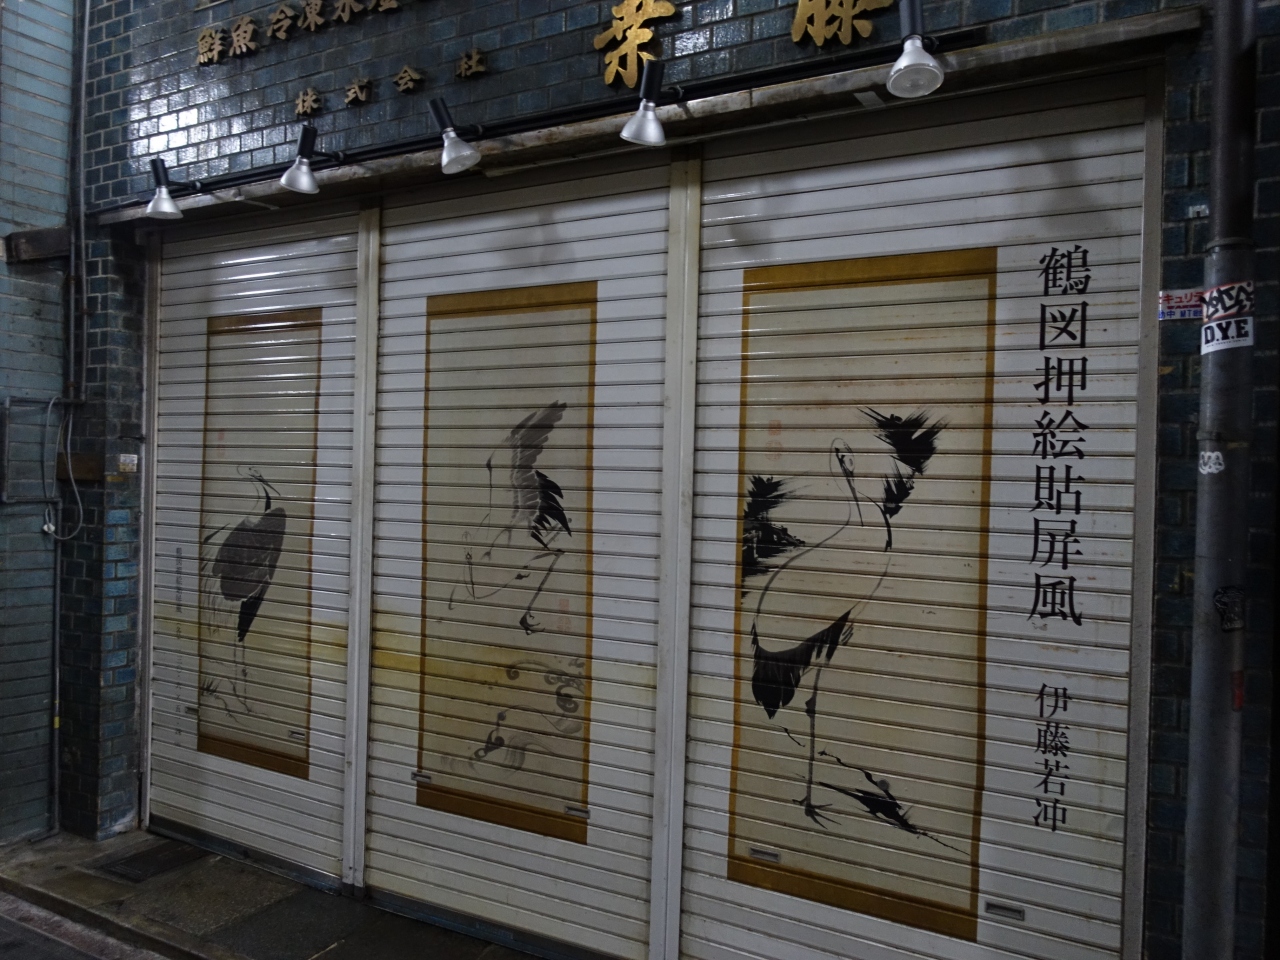 鮮魚冷凍水産
株式会社
藤
鶴図押絵貼屏風
伊藤若冲
キュリテ
D.Y.E